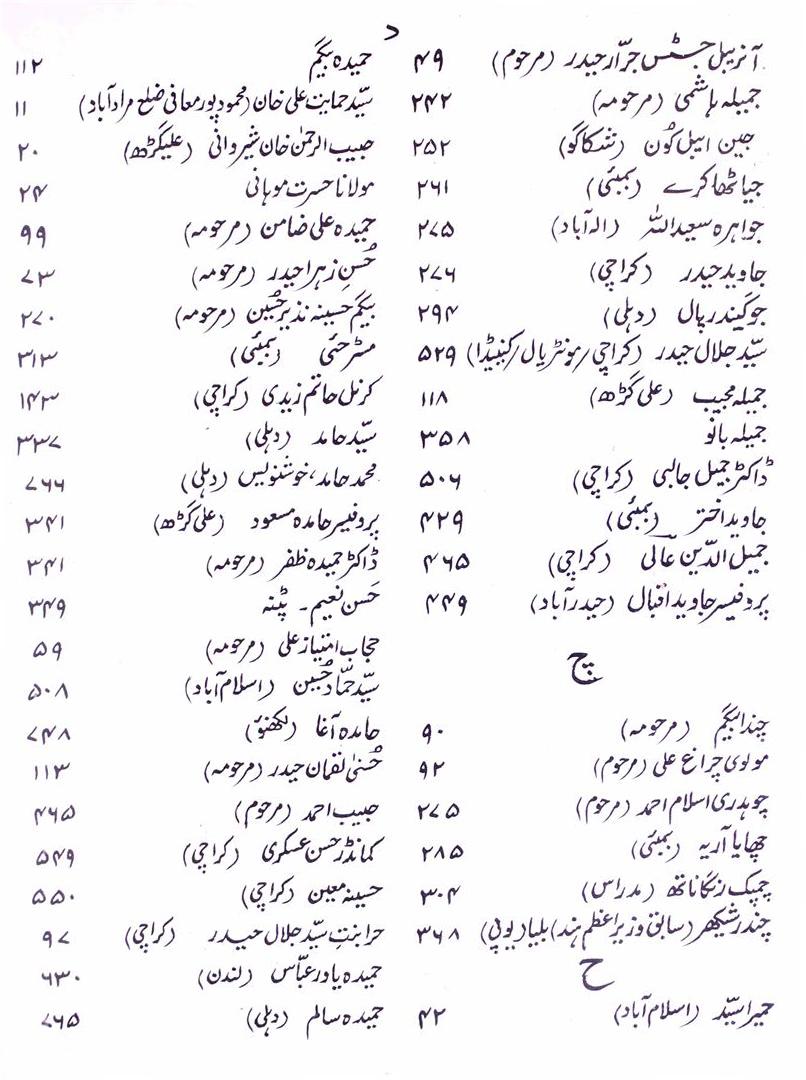 د
آنریبل جسٹس جرّار حیدر (مرحوم) ۴۹
جمیلہ ہاشمی (مرحومہ) ۲۴۲
جین ایبل کون (شکاگو) ۲۵۲
جیا ٹھاکرے (بمبئی) ۲۶۱
جواہرہ سعید اللہ (الہ آباد) ۲۷۵
جاوید حیدر (کراچی) ۲۷۶
جوگیندر پال (دہلی) ۲۹۴
سیّد جلال حیدر (کراچی/مونٹریال/کنیڈا) ۵۲۹
جمیلہ مجیب (علی گڑھ) ۱۱۸
جمیلہ بانو ۳۵۸
ڈاکٹر جمیل جالبی (کراچی) ۵۰۶
جاوید اختر (بمبئی) ۴۲۹
جمیل الدّین عالی (کراچی) ۴۶۵
پروفیسر جاوید اقبال (حیدرآباد) ۴۴۹
چ
چندا بیگم (مرحومہ) ۹۰
مولوی چراغ علی (مرحوم) ۹۲
چوہدری اسلام احمد (مرحوم) ۲۷۵
چھایا آریہ (بمبئی) ۲۸۵
چمپک رنگاناتھ (مدراس) ۳۰۴
چندر شیکھر (سابق وزیر اعظم ہند) بلیا، یوپی) ۳۶۸
ح
حمیرا سیّد (اسلام آباد) ۴۲
حمیدہ بیگم ۱۱۲
سیّد حمایت علی خان (محمود پور معافی ضلع مراد آباد) ۱۱
حبیب الرحمٰن خان شیروانی (علیگڑھ) ۲۰
مولانا حسرت موہانی ۲۴
حمیدہ علی ضامن (مرحومہ) ۹۹
حُسنِ زہرا حیدر (مرحومہ) ۷۳
بیگم حسینہ نذیر حُسین (مرحومہ) ۲۷۰
مسٹر حئی (بمبئی) ۳۱۳
کرنل حاتم زیدی (کراچی) ۱۴۳
سیّد حامد (دہلی) ۳۳۷
محمد حامد، خوشنویس (دہلی) ۷۶۶
پروفیسر حامدہ مسعود (علی گڑھ) ۳۴۱
ڈاکٹر حمیدہ ظفر (مرحومہ) ۳۴۱
حَسن نعیم۔ پٹنہ ۳۴۹
حجاب امتیاز علی (مرحومہ) ۵۹
سیّد حمّاد حُسین (اسلام آباد) ۵۰۸
حامدہ آغا (لکھنؤ) ۷۴۸
حُسنیٰ لقمان حیدر (مرحومہ) ۱۱۳
حبیب احمد (مرحوم) ۴۶۵
کمانڈر حسن عسکری (کراچی) ۵۴۹
حسینہ معین (کراچی) ۵۵۰
حرا بنتِ سیّد جلال حیدر (کراچی) ۹۷
حمیدہ یاور عبّاس (لندن) ۶۳۰
حمیدہ سالم (دہلی) ۷۶۵